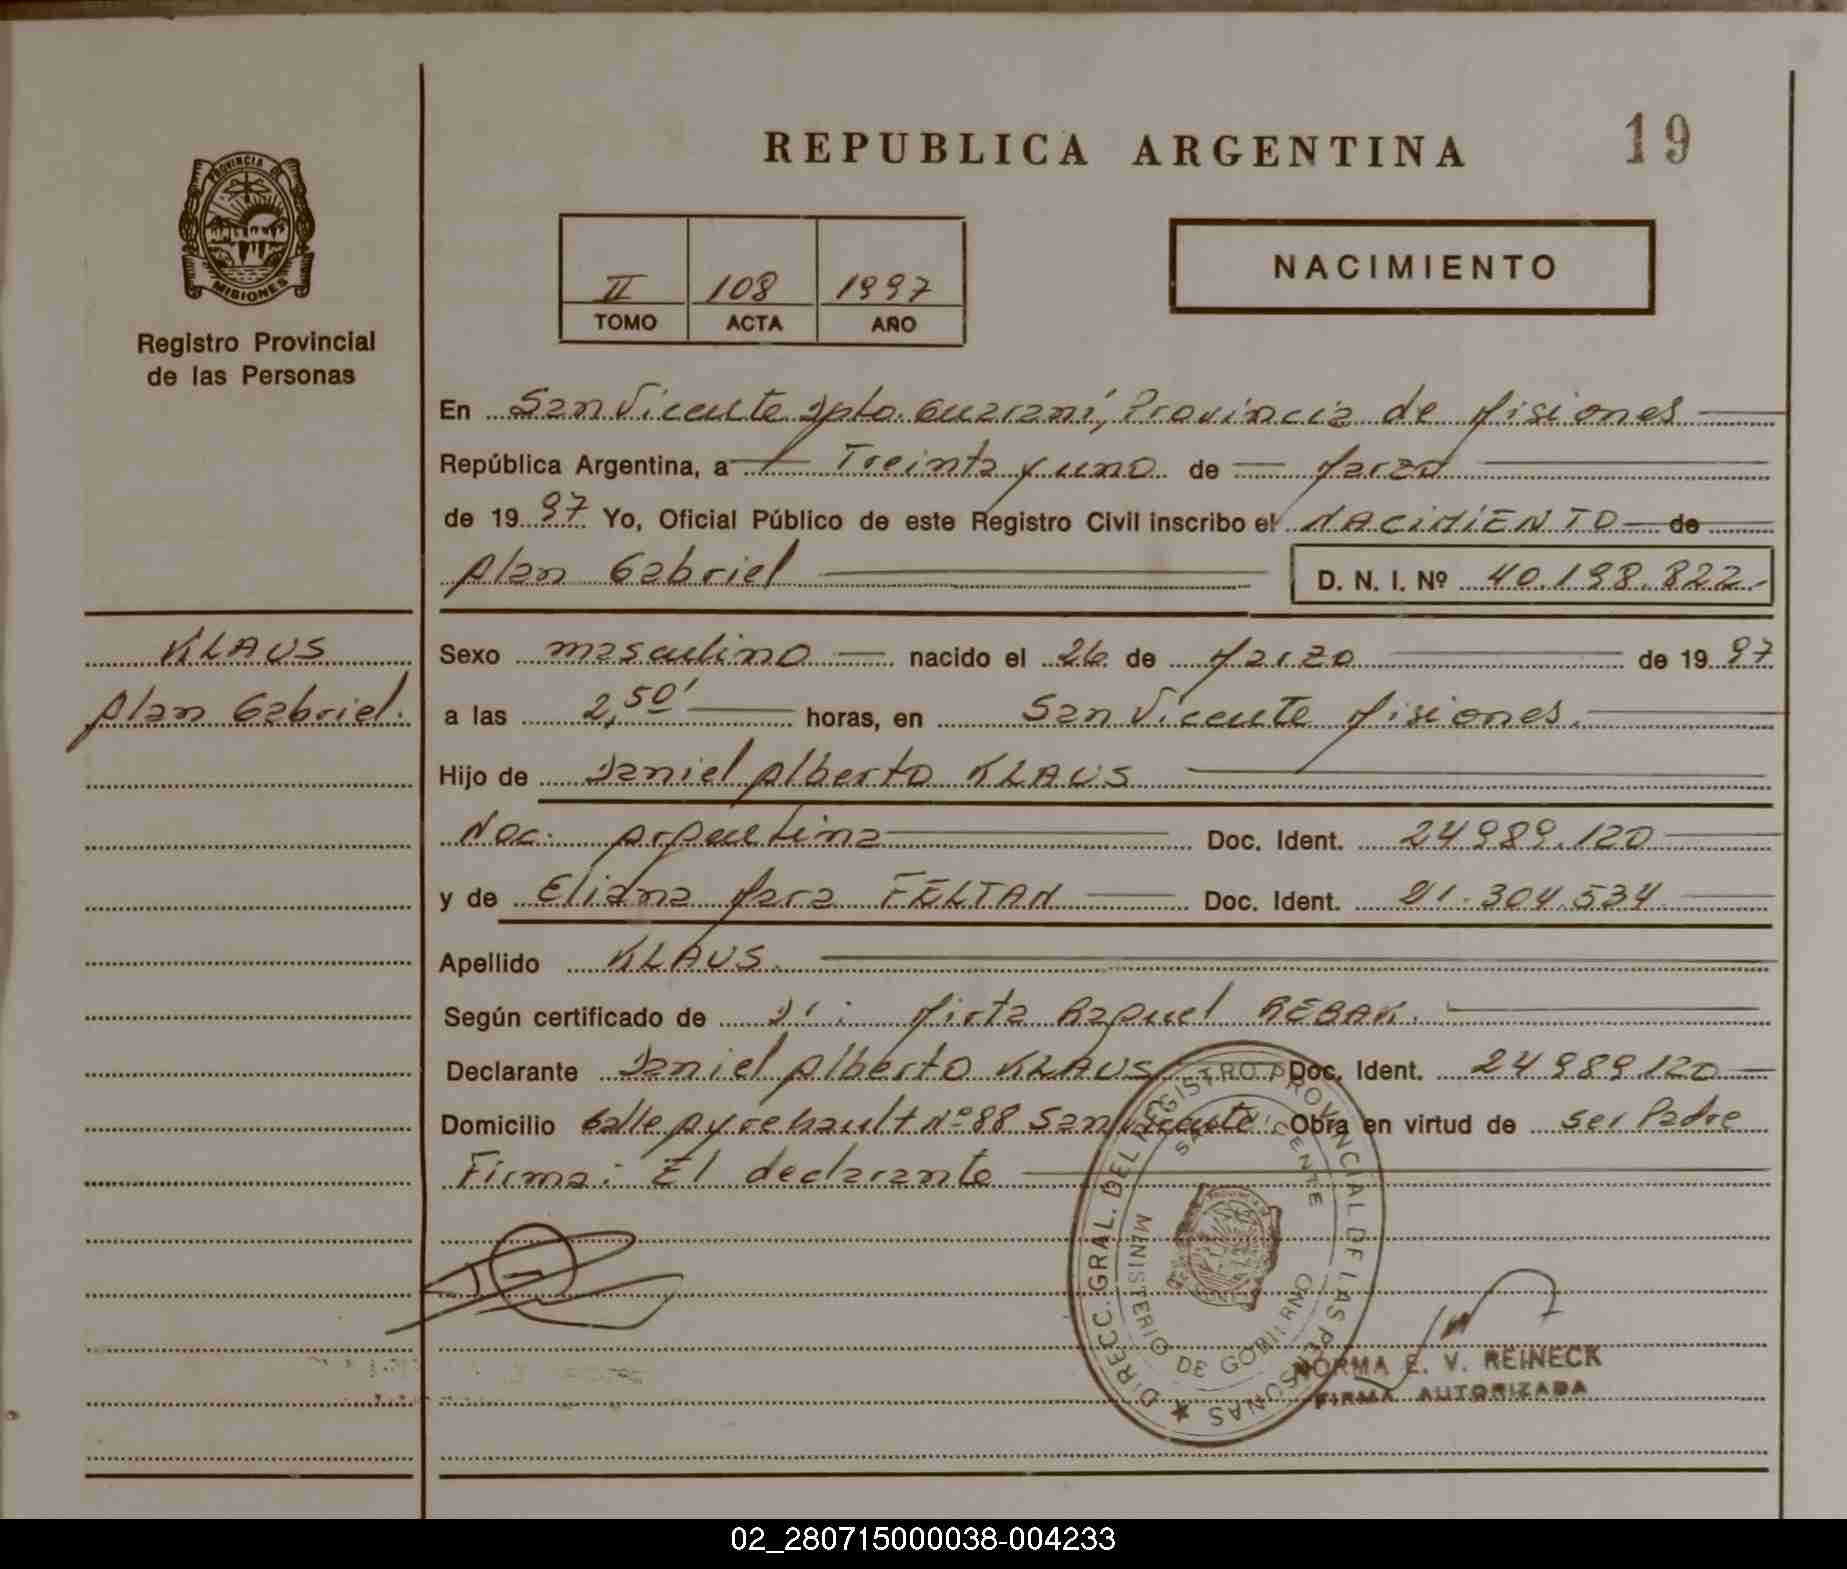 REPUBLICA ARGENTINA
19
PROVINCIA DE
MISIONES
Registro Provincial
de las Personas
II 108 1997
TOMO ACTA AÑO
NACIMIENTO
En San Vicente Dpto. Guaraní, Provincia de Misiones
República Argentina, a Treinta y uno de Marzo
de 1997 Yo, Oficial Público de este Registro Civil inscribo el NACIMIENTO de
Alan Gabriel
D. N. I. Nº 40.198.822.-
KLAUS
Alan Gabriel.
Sexo masculino nacido el 26 de Marzo de 1997
a las 2,50' horas, en San Vicente Misiones.
Hijo de Daniel Alberto KLAUS
Nac. Argentina Doc. Ident. 24989.120
y de Eliana Mara FELTAN Doc. Ident. 21.304.534
Apellido KLAUS.
Según certificado de Mirta Raquel REBAK.
Declarante Daniel Alberto KLAUS Doc. Ident. 24989.120
Domicilio Calle Nº 88 San Vicente. Obra en virtud de ser Padre
Firma: El declarante
DIRECC. GRAL. DEL REGISTRO PROVINCIAL DE LAS PERSONAS
SAN VICENTE
MINISTERIO DE GOBIERNO
NORMA E. V. REINECK
FIRMA AUTORIZADA
02_280715000038-004233